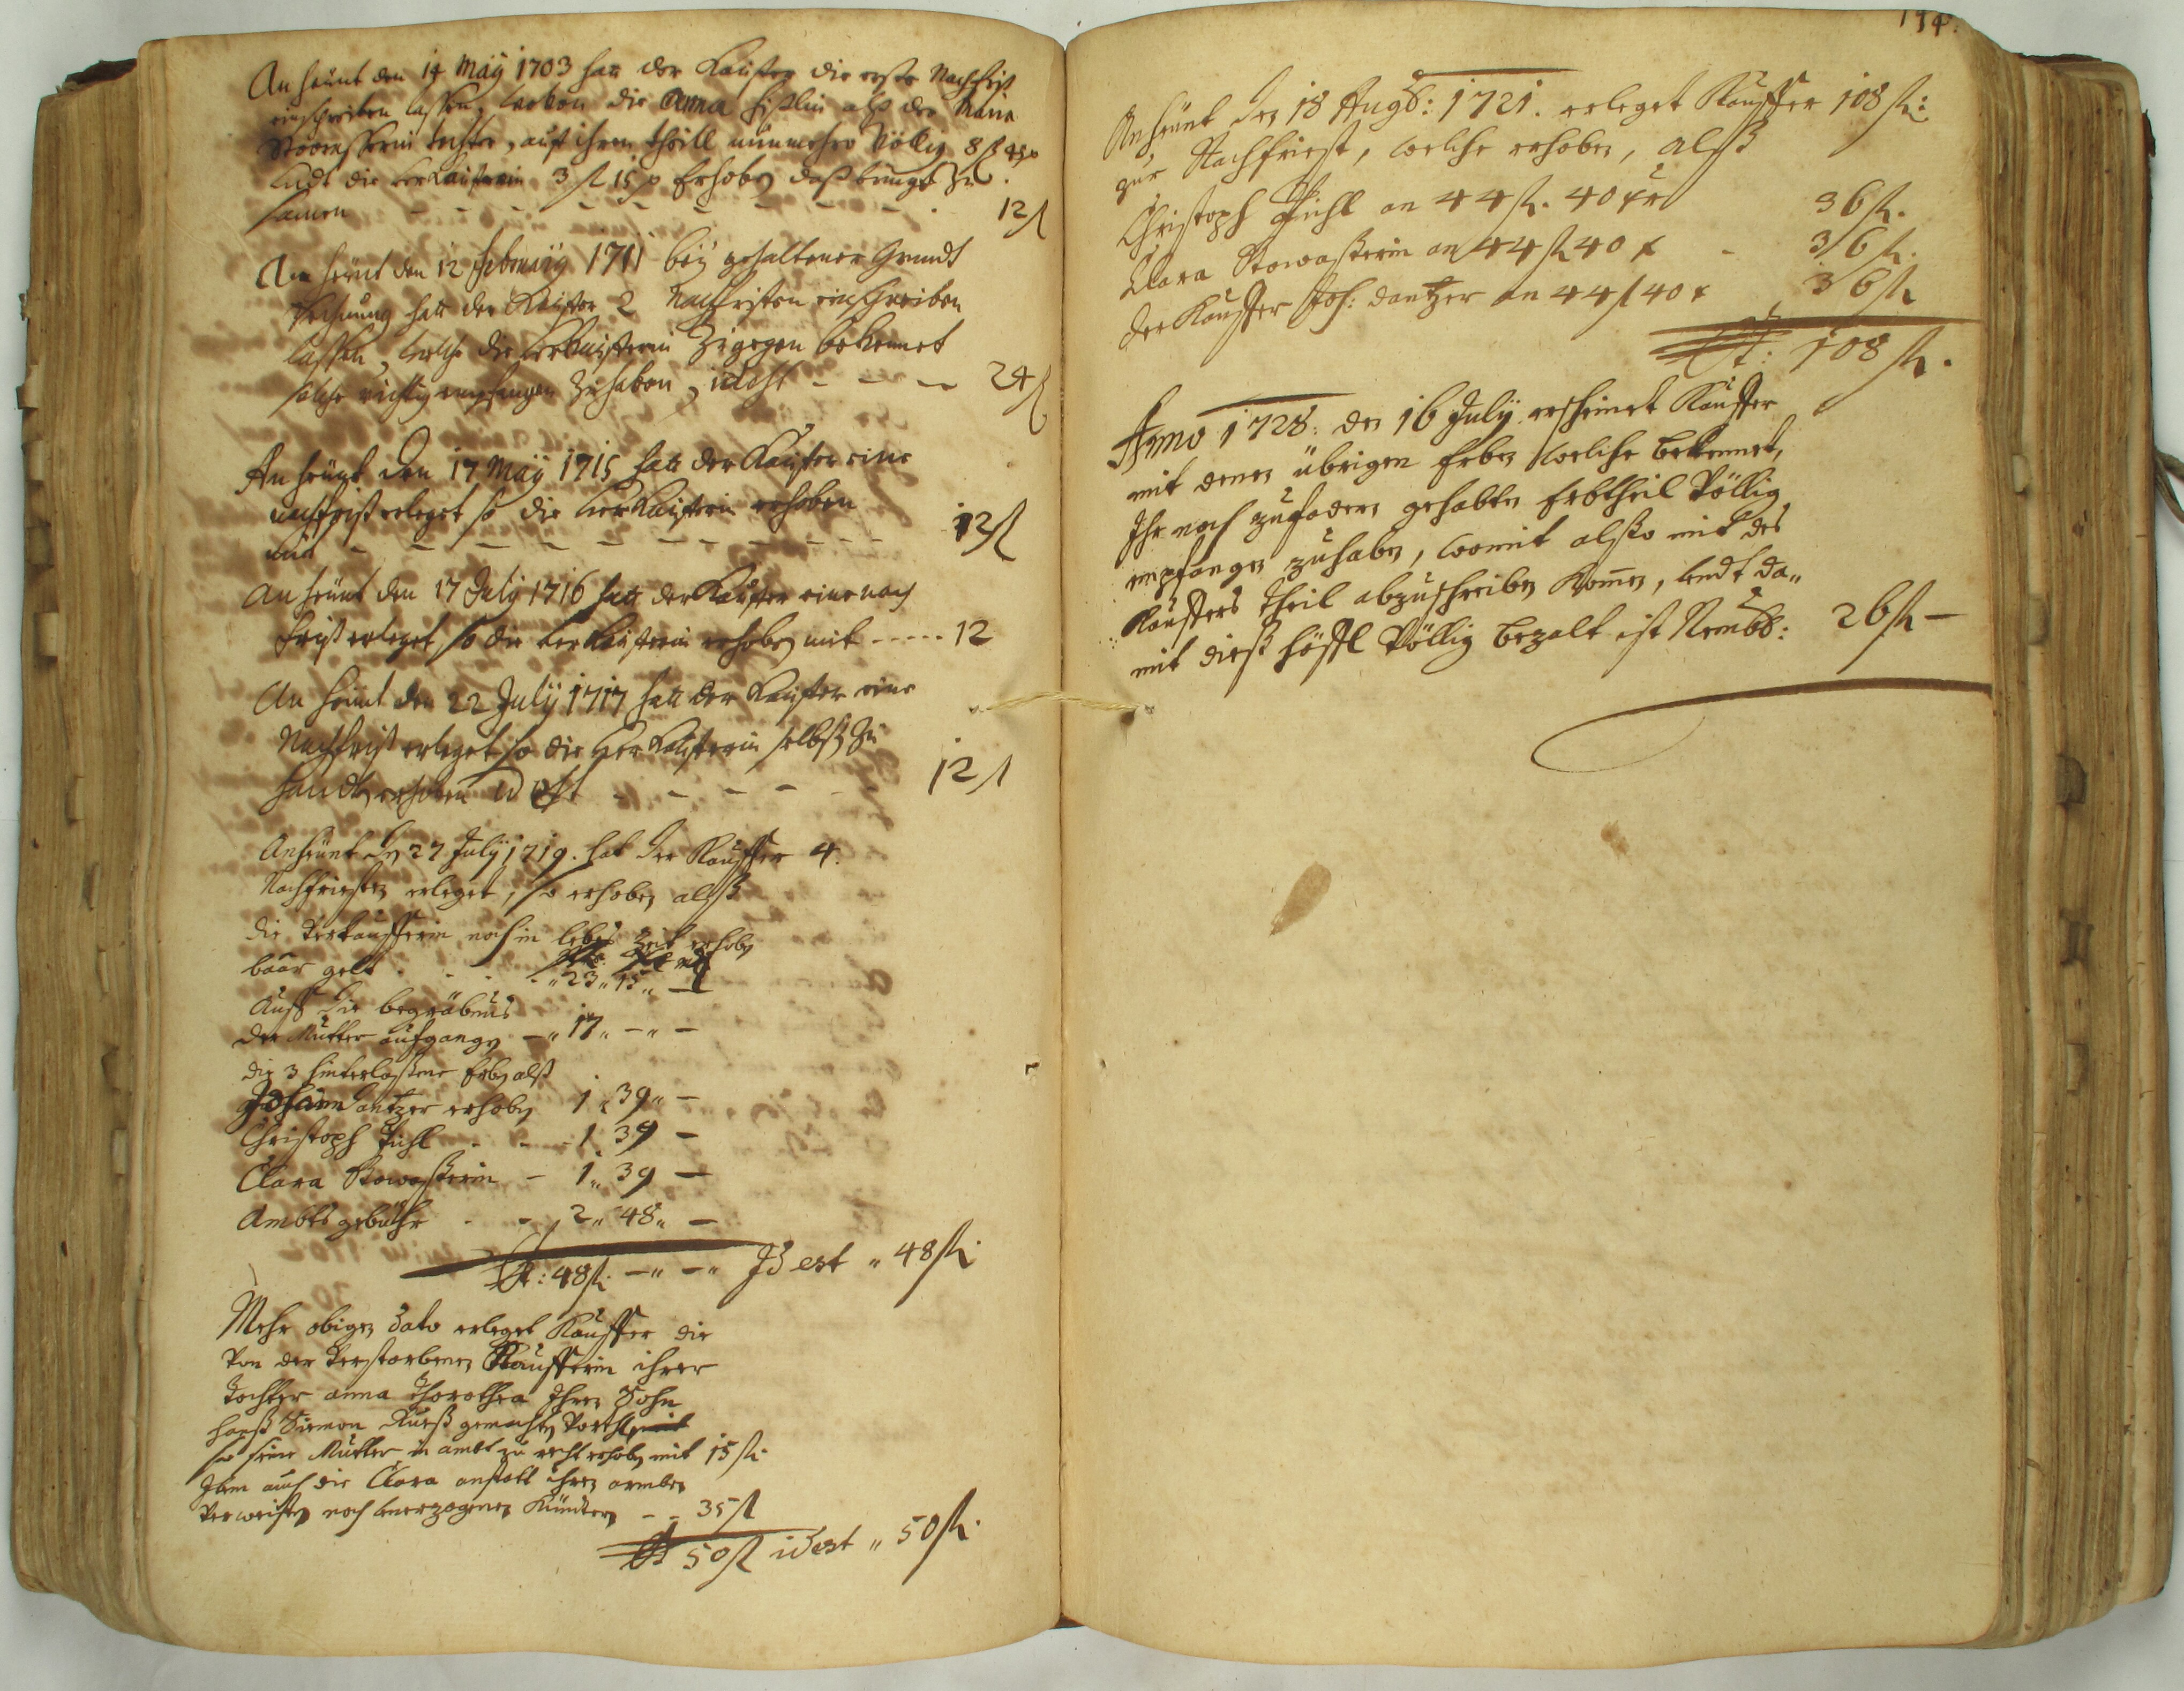 An heünt den 14 Maÿ 1703 hatt der Kauffer die erste Nachfrist
einschreiben lassen, wovon die Anna alß der
tochter, auf ihren theill nunmehro Völlig 8 ß 45 x
undt die verkaufferin 3 fl 15 x Erhoben daß bringt zu
samen - - - - - - - - - 12 fl
An heünt den 12 February 1711 beÿ gehaltener Grundt
Rechnung hatt der Kauffer 2 Nachfristen einschreiben
lassen, welche die verkaufferin Zugegen bekennet
solche richtig empfangen Zu haben, id est - - - 24 fl
An heünt den 17 Maÿ 1715 hatt der Kauffer eine
nachfrist erleget so die verkaufferin erhoben
mit - - - - - - - - - 12 fl
An heünt den 17 Julÿ 1716 hatt der Kauffer eine nach
frist erleget so die verkaufferin erhoben mit - - - - - 12
An heünt den 22 Julÿ 1717 hatt der Kauffer eine
Nachfrist erleget so die verkaufferin selbst Zu
handen erhoben id est - - - - - 12 fl
An heünt den 27 Julÿ 1719. hat der Kauffer 4.
Nachfristen erleget, so erhoben, alß
die Verkaufferin noch in lebens Zeit erhoben
baar gelt . - . - " 23 " 15 " —
Auff die begräbnus
der Mutter aufgangen — " 17 " — " —
die 3 hinterlassene Erben alß
Johann dantzer erhoben 1 " 39 " —
Christoph Pichl - - - 1 39 —
Clara Stowasserin - 1 " 39 —
Ambtsgebühr - - 2 " 48 " —
St: 48 fl. — " — " Id est " 48 fl.
Mehr obigen dato erleget Kauffer die
Von der Verstorbenen Kaufferin ihrer
Tochter anna Dorothea Ihren Sohn
Hanß Siemon gemachten
so seine Mutter in ambt zu recht erhoben mit 15 fl.
Item auch die Clara anstatt ihren armben
Verweisten noch unerzogenen Kündern - - 35 fl
St 50 fl id est " 50 fl.
194.
An heünt den 18 Augs: 1721. erleget Kauffer 108 fl:
zur Nachfriest, welche erhoben, alß
Christoph Pichl an 44 fl. 40 xr 36 fl.
Clara Stowasserin an 44 fl 40 x - 36 fl.
der Kauffer Joh: dantzer an 44 fl 40 x 36 fl
St: 108 fl.
Anno 1728: den 16 Julÿ erscheinet Kauffer
mit denen übrigen Erben welche bekennet,
Ihr noch zufodern gehabten Erbtheil Völlig
empfangen zuhaben, womit also mit des
Kauffers theil abzuschreiben kommen, undt da„
mit dieß höffl Völlig bezalt ist Nembl: 26 fl —